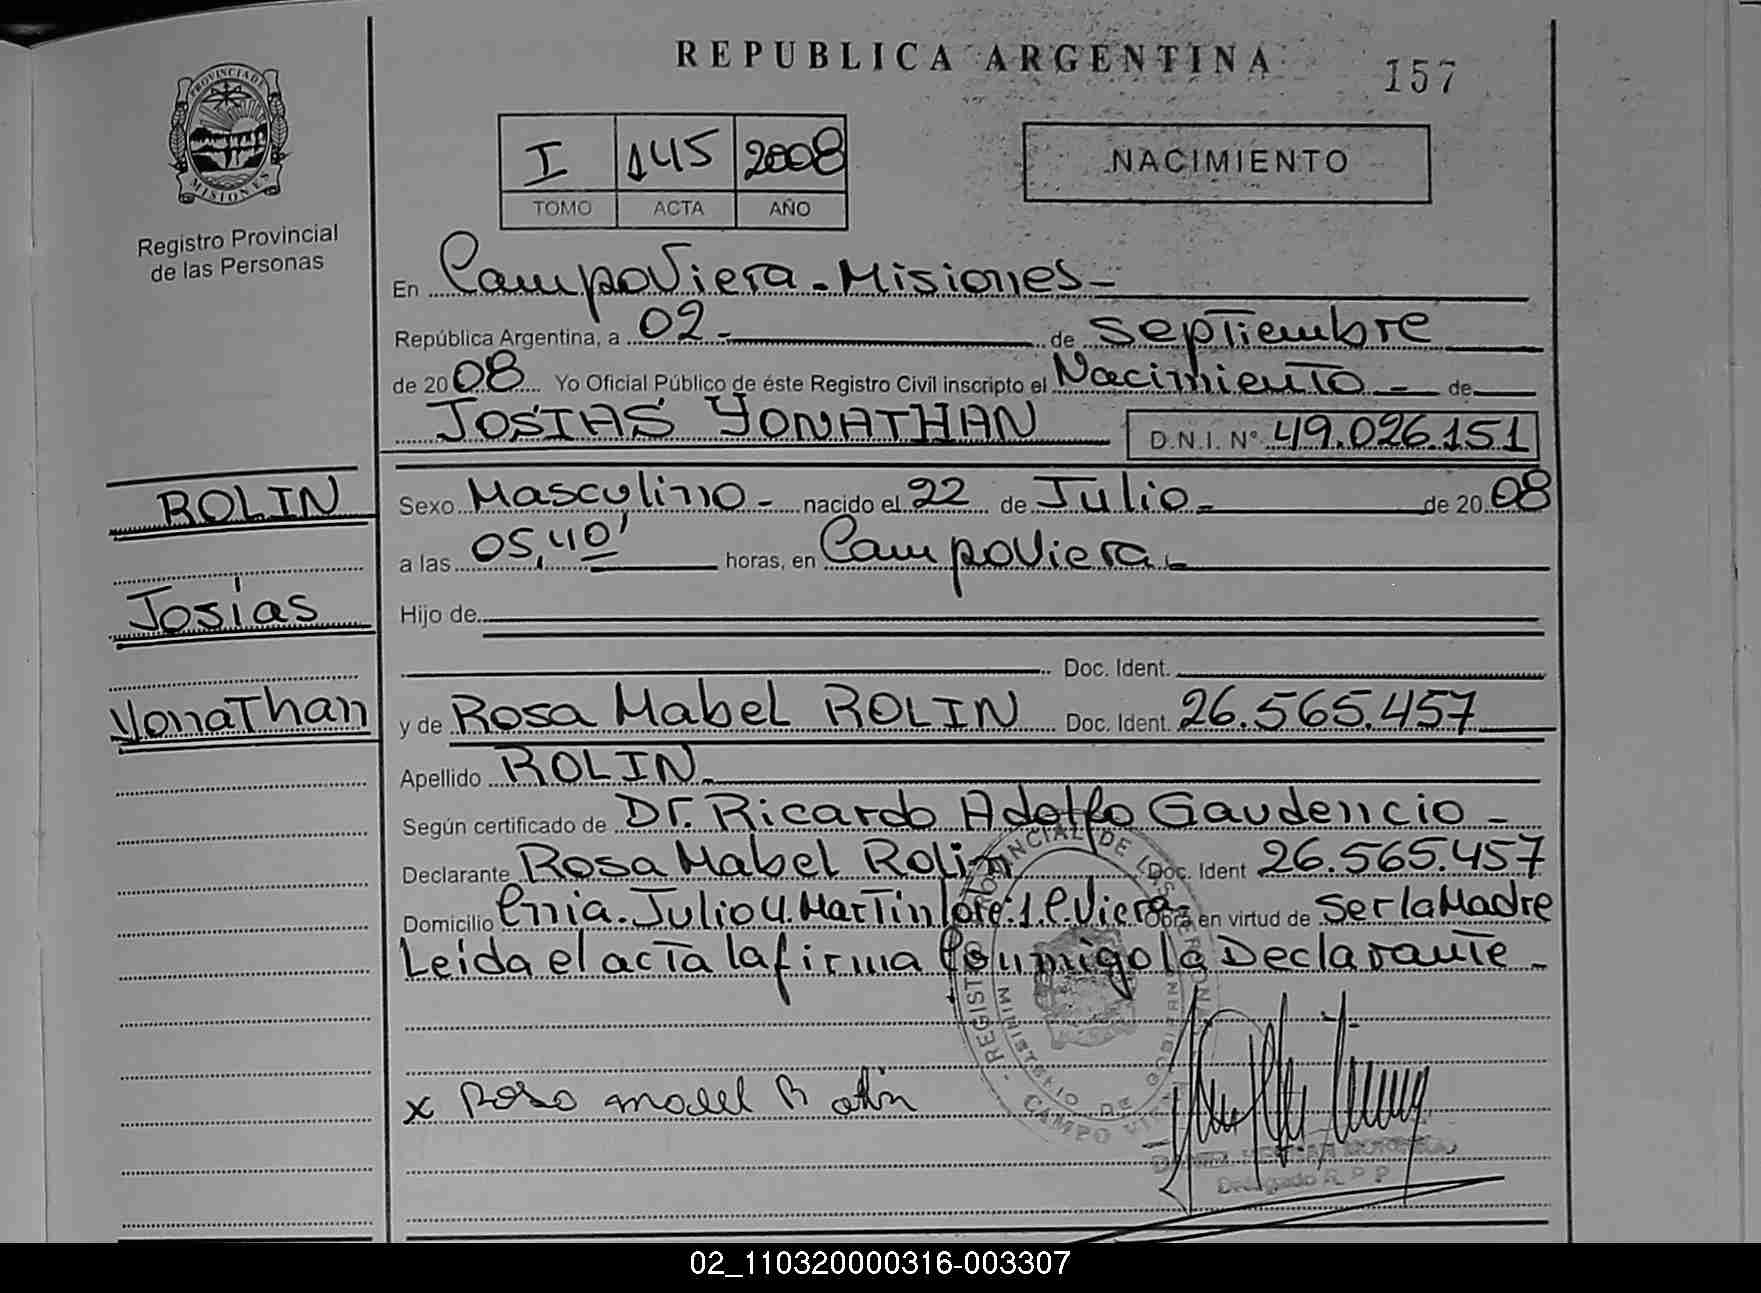 REPUBLICA ARGENTINA
157
PROVINCIA DE MISIONES
Registro Provincial
de las Personas
I 145 2008
TOMO ACTA AÑO
NACIMIENTO
En Campo Viera - Misiones -
República Argentina, a 02 - de Septiembre
de 2008 Yo Oficial Público de éste Registro Civil inscripto el Nacimiento - de
JOSÍAS YONATHAN D.N.I. N° 49.026.151
ROLIN
Josías
Yonathan
Sexo Masculino - nacido el 22 de Julio - de 2008
a las 05,40' horas, en Campo Viera -
Hijo de
Doc. Ident.
y de Rosa Mabel ROLIN Doc. Ident. 26.565.457
Apellido ROLIN -
Según certificado de Dr. Ricardo Adolfo Gaudencio -
Declarante Rosa Mabel Rolin Doc. Ident 26.565.457
Domicilio Cnia. Julio U. Martin Lote: 1. C. Viera Obra en virtud de Ser la Madre
Leída el acta la firma Conmigo la Declarante -
REGISTRO PROVINCIAL DE LAS PERSONAS - CAMPO VIERA
MINISTERIO DE GOBIERNO
x Rosa mabel Rolin
Delegado R.P.P.
02_110320000316-003307